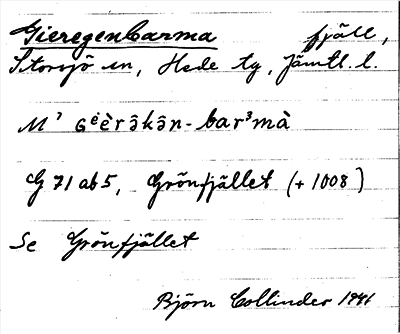 Gieregenbarma fjäll,
Storsjö sn, Hede tg, Jämtl. l.
M' Gèèrə̂kə̂n-bar³mà
G 71 ab 5, Grönfjället (+ 1008)
Se Grönfjället
Björn Collinder 1941